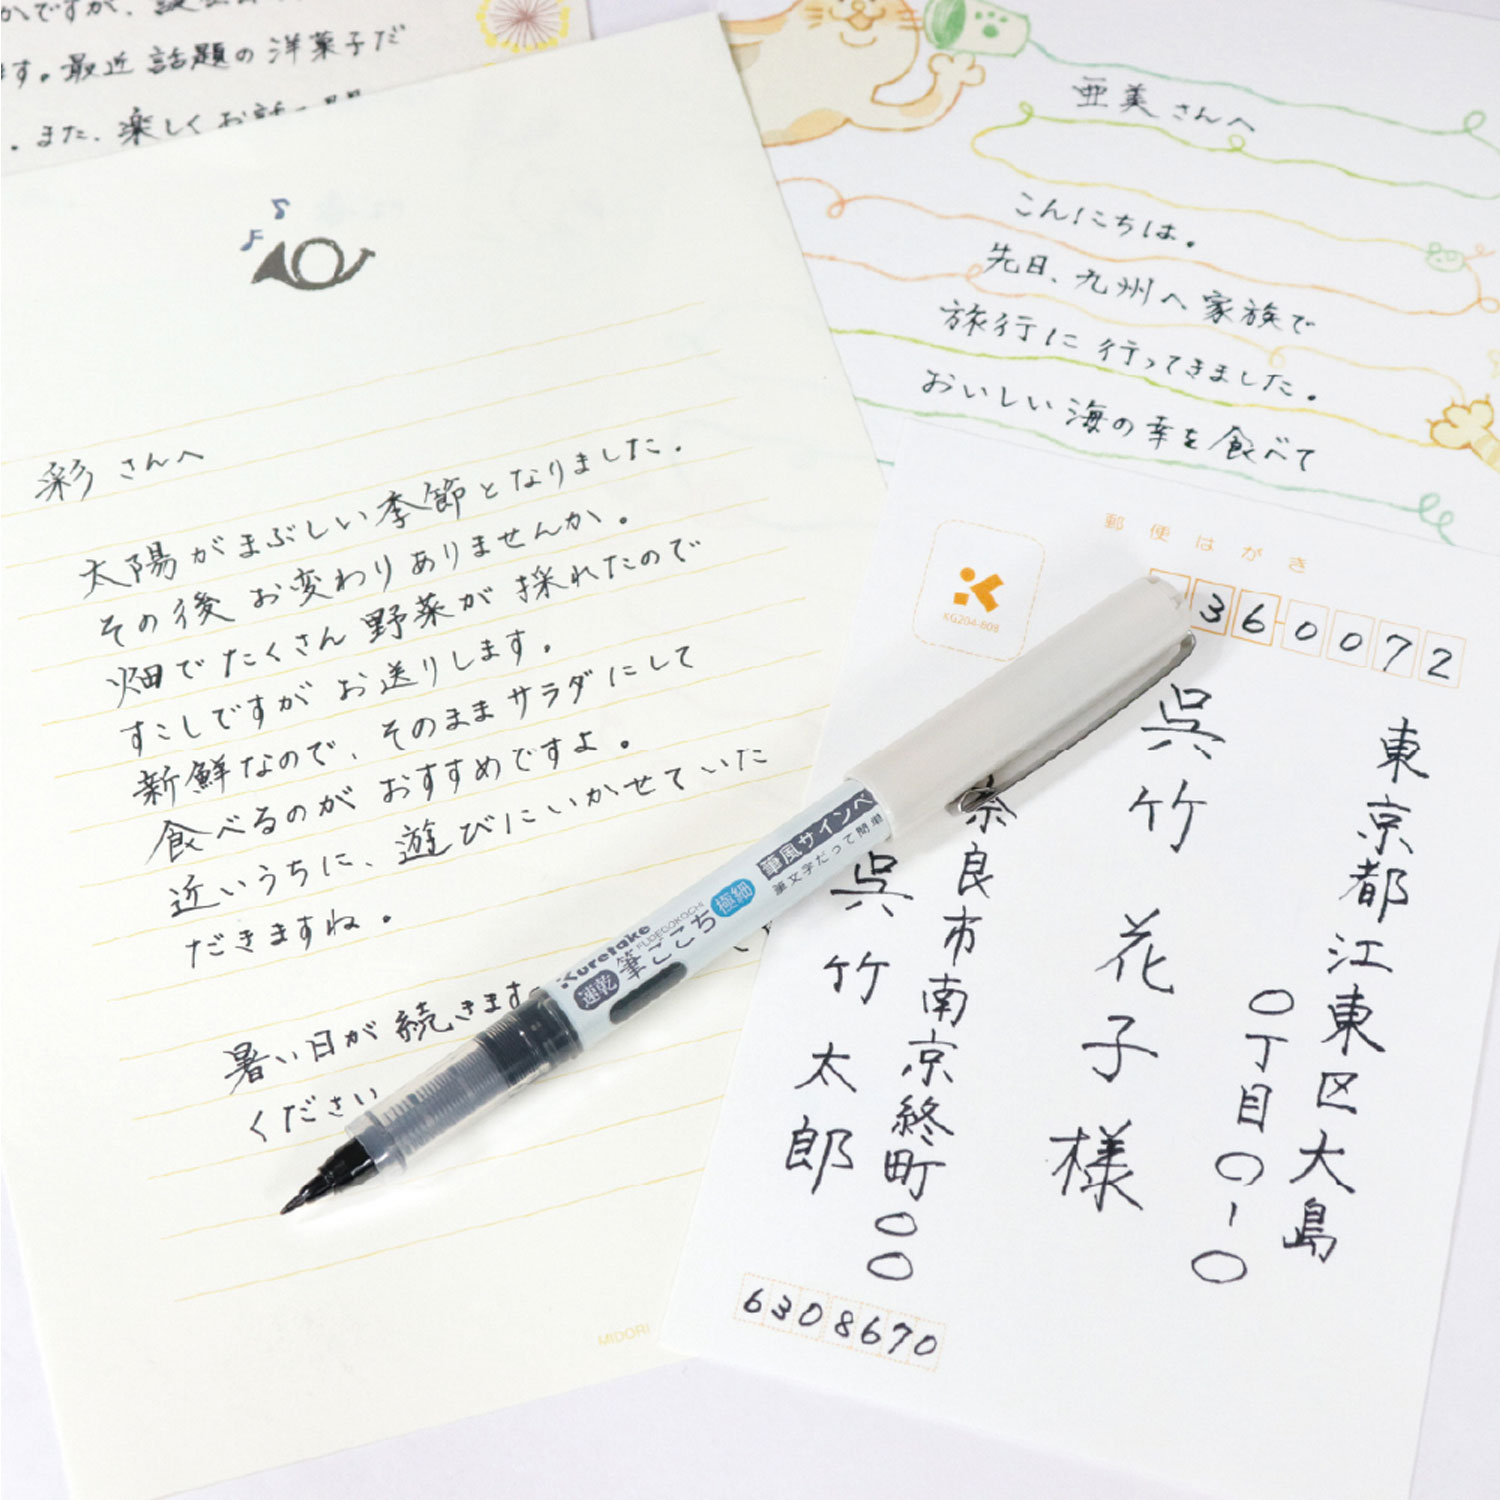 す。最近話題の洋菓子だ
。また、楽しくお話
彩さんへ
太陽がまぶしい季節となりました。
その後お変わりありませんか。
畑でたくさん野菜が採れたので
すこしですがお送りします。
新鮮なので、そのままサラダにして
食べるのがおすすめですよ。
近いうちに、遊びにいかせていた
だきますね。
暑い日が続きます
ください
MIDORI
亜美さんへ
こんにちは。
先日、九州へ家族で
旅行に行ってきました。
おいしい海の幸を食べて
郵便はがき
KG204-808
360072
東京都江東区大島
〇丁目〇-〇
呉竹 花子様
奈良市南京終町〇〇
呉竹 太郎
6308670
Kuretake
速乾
筆ごこち
FUDEGOKOCHI
極細
筆風サインペ
筆文字だって簡単